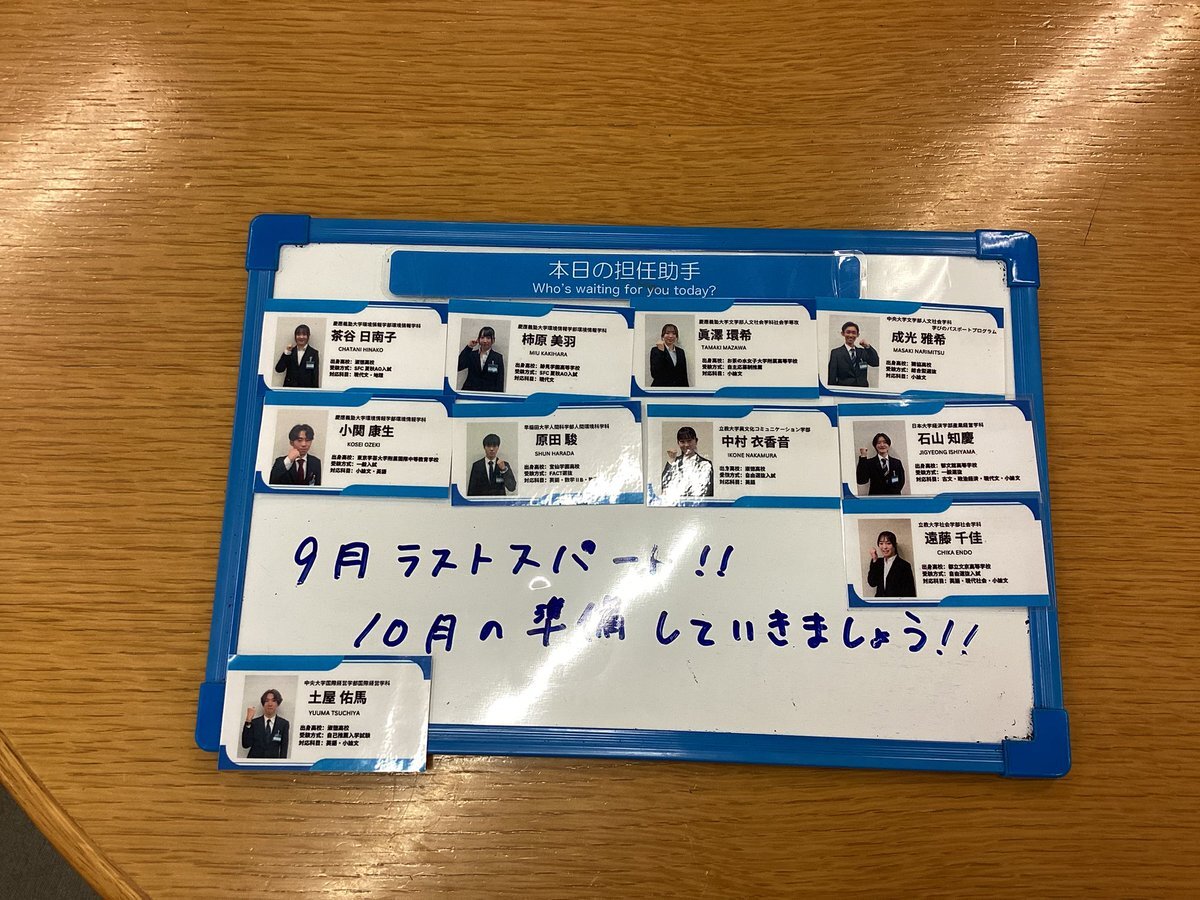 本日の担任助手
Who's waiting for you today?
慶應義塾大学環境情報学部環境情報学科
茶谷 日南子
CHATANI HINAKO
出身高校：淑徳高校
受験方式：SFC 夏秋AO入試
対応科目：現代文・地理
慶應義塾大学環境情報学部環境情報学科
柿原 美羽
MIU KAKIHARA
出身高校：跡見学園高等学校
受験方式：SFC 夏秋AO入試
対応科目：現代文
慶應義塾大学文学部人文社会学科社会学専攻
眞澤 環希
TAMAKI MAZAWA
出身高校：お茶の水女子大学附属高等学校
受験方式：自主応募制推薦
対応科目：小論文
中央大学文学部人文社会学科
学びのパスポートプログラム
成光 雅希
MASAKI NARIMITSU
出身高校：
受験方式：総合型選抜
対応科目：小論文
慶應義塾大学環境情報学部環境情報学科
小関 康生
KOSEI OZEKI
出身高校：東京学芸大学附属国際中等教育学校
受験方式：一般入試
対応科目：小論文・英語
早稲田大学人間科学部人間環境科学科
原田 駿
SHUN HARADA
出身高校：宝仙学園高校
受験方式：FACT選抜
対応科目：英語・数学ⅡB・
立教大学異文化コミュニケーション学部
中村 衣香音
IKONE NAKAMURA
出身高校：淑徳高校
受験方式：自由選抜入試
対応科目：英語
日本大学経済学部産業経営学科
石山 知慶
JIGYEONG ISHIYAMA
出身高校：郁文館高等学校
受験方式：一般選抜
対応科目：古文・政治経済・現代文・小論文
立教大学社会学部社会学科
遠藤 千佳
CHIKA ENDO
出身高校：都立文京高等学校
受験方式：自由選抜入試
対応科目：英語・現代社会・小論文
9月 ラストスパート!!
10月の準備していきましょう!!
中央大学国際経営学部国際経営学科
土屋 佑馬
YUUMA TSUCHIYA
出身高校：淑徳高校
受験方式：自己推薦入学試験
対応科目：英語・小論文